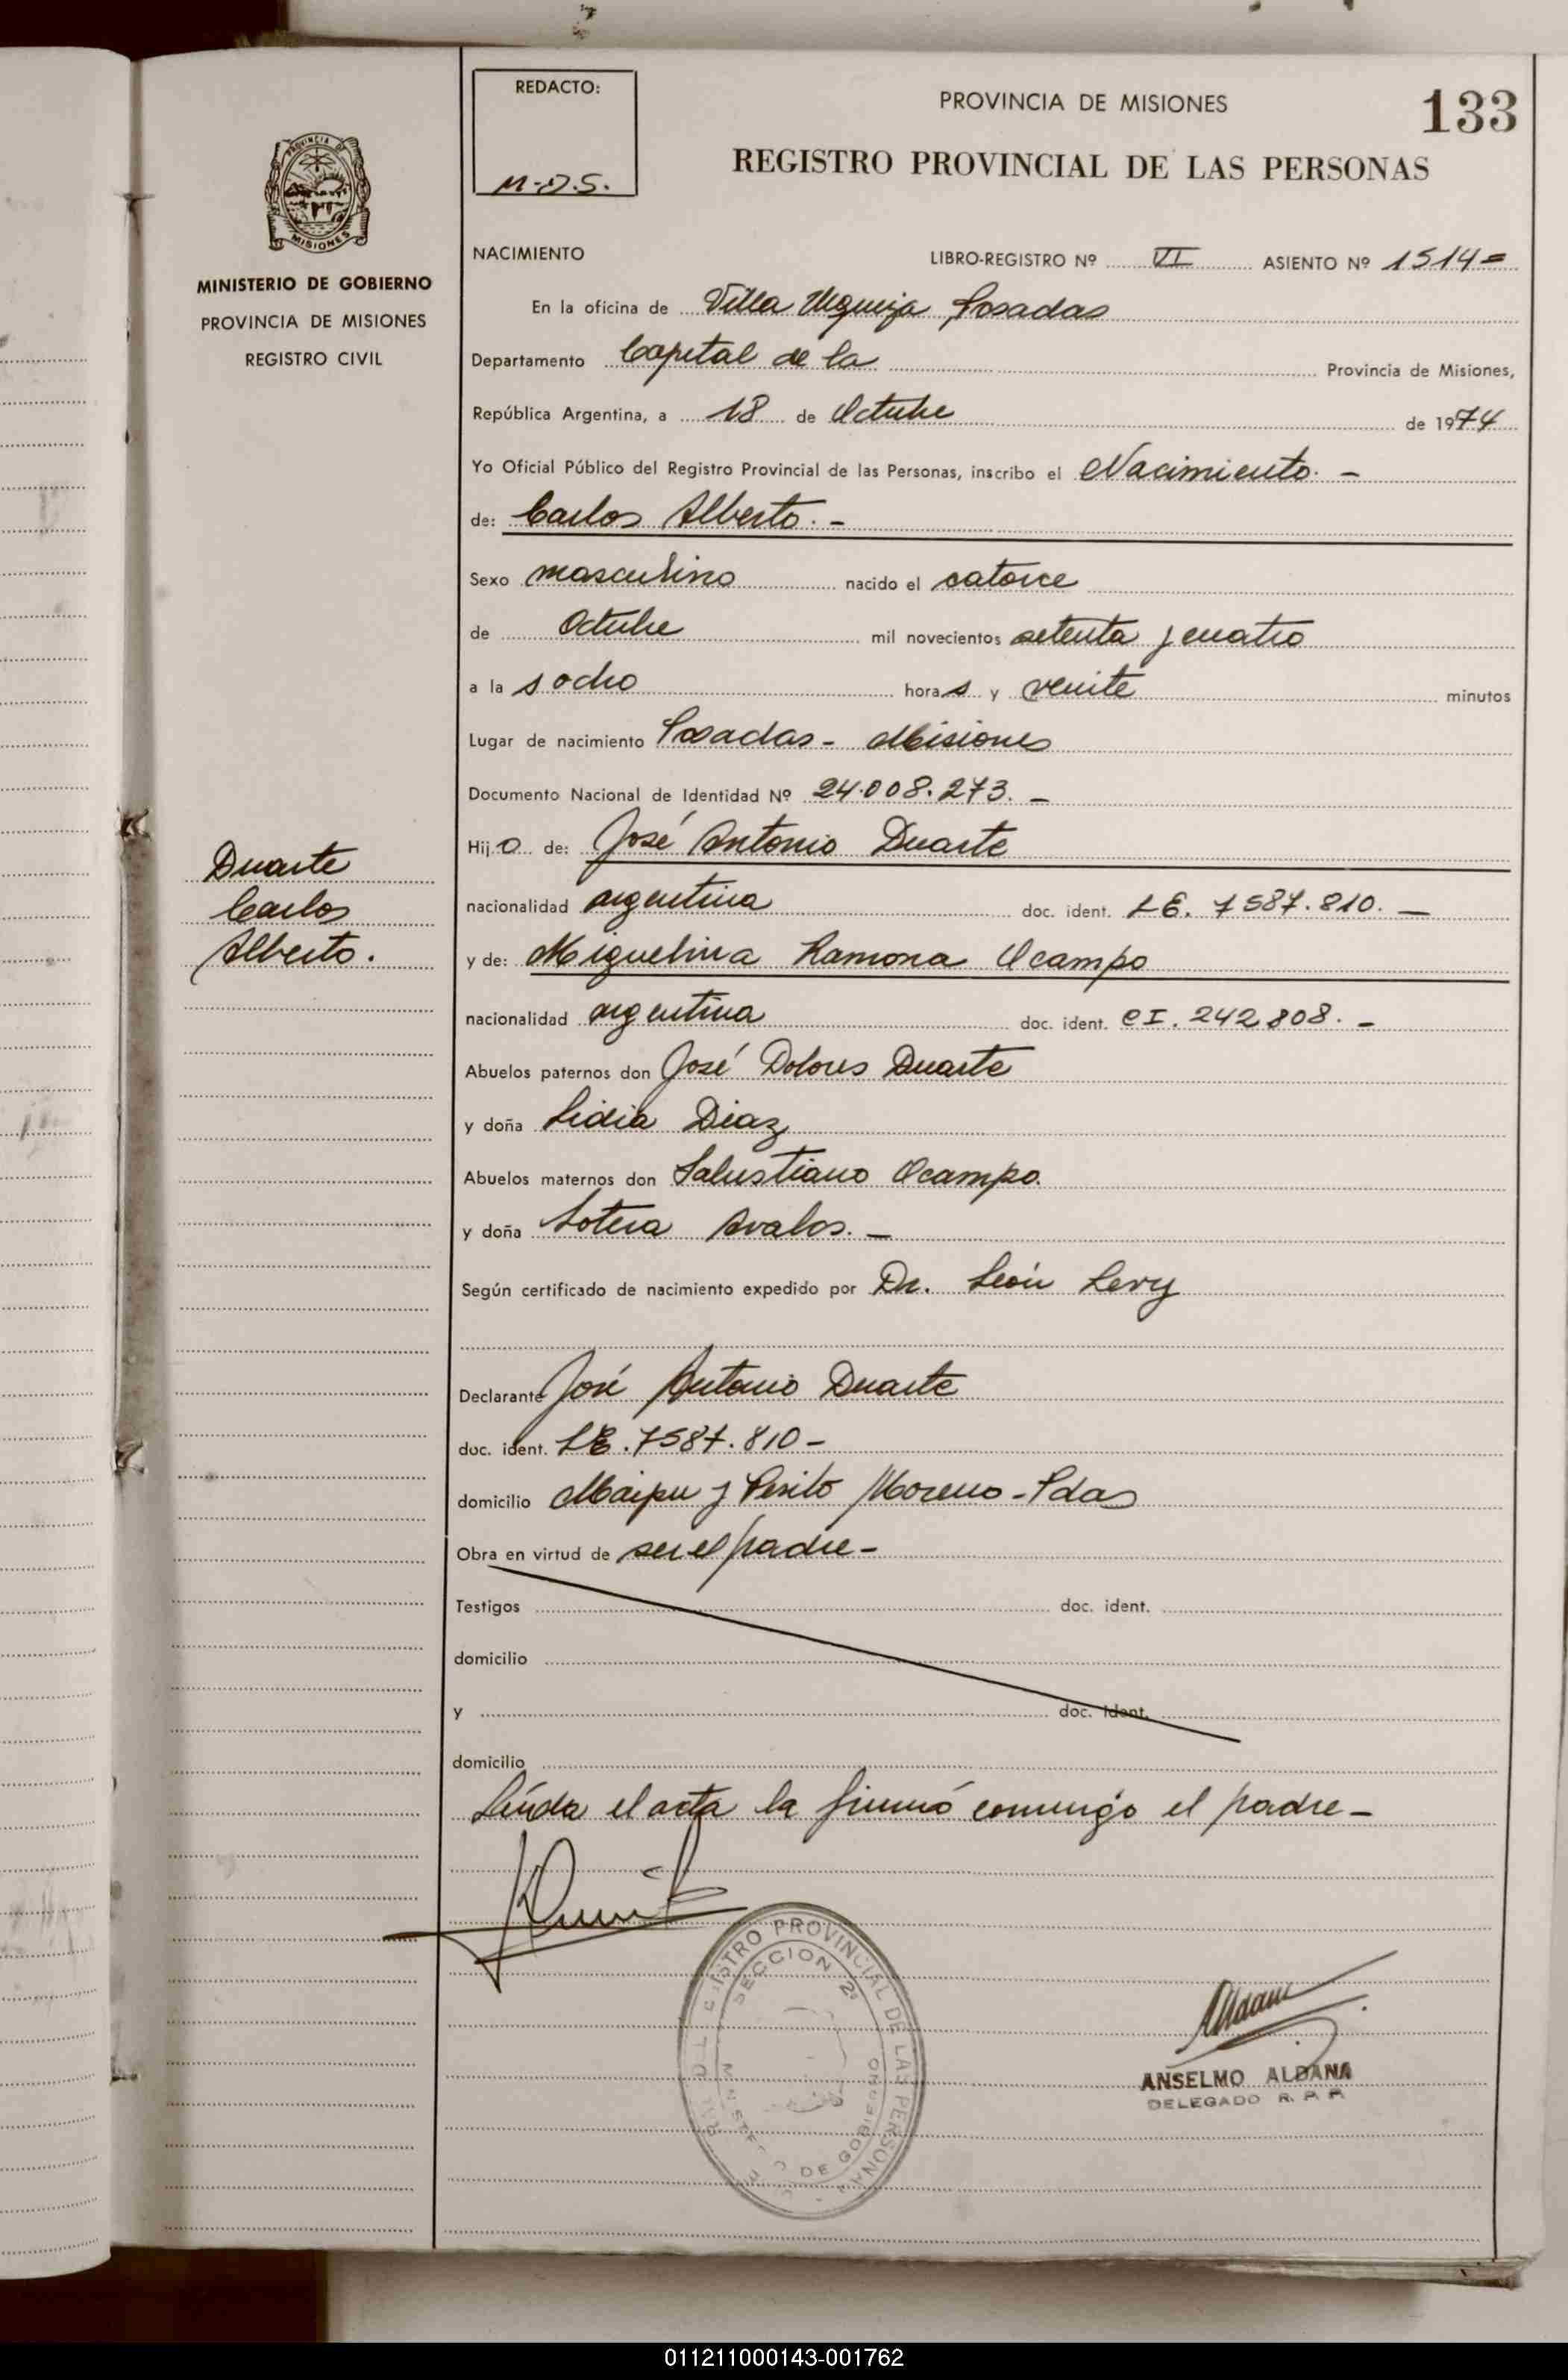 REDACTO:
M-D.S.
PROVINCIA DE MISIONES
133
REGISTRO PROVINCIAL DE LAS PERSONAS
PROVINCIA DE
MISIONES
MINISTERIO DE GOBIERNO
PROVINCIA DE MISIONES
REGISTRO CIVIL
NACIMIENTO LIBRO-REGISTRO Nº VI ASIENTO Nº 1514=
En la oficina de Villa Urquiza Posadas
Departamento Capital de la Provincia de Misiones,
República Argentina, a 18 de Octubre de 1974
Yo Oficial Público del Registro Provincial de las Personas, inscribo el Nacimiento. -
de: Carlos Alberto. -
Sexo masculino nacido el catorce
de Octubre mil novecientos setenta y cuatro
a las ocho horas y veinte minutos
Lugar de nacimiento Posadas - Misiones
Documento Nacional de Identidad Nº 24.008.273. -
Hijo de: José Antonio Duarte
Duarte
Carlos
Alberto.
nacionalidad argentina doc. ident. LE. 7587.810. -
y de: Miguelina Ramona Ocampo
nacionalidad argentina doc. ident. CI. 242.808. -
Abuelos paternos don José Dolores Duarte
y doña Lidia Diaz
Abuelos maternos don Salustiano Ocampo.
y doña Sotera Avalos. -
Según certificado de nacimiento expedido por Dr. León Levy
Declarante José Antonio Duarte
doc. ident. LE. 7587.810 -
domicilio Maipu y Perito Moreno - Pdas
Obra en virtud de ser el padre -
Testigos doc. ident.
domicilio
y doc. ident.
domicilio
Leída el acta la firmó conmigo el padre -
REGISTRO PROVINCIAL DE LAS PERSONAS
SECCION 2ª
MINISTERIO DE GOBIERNO
ANSELMO ALDANA
DELEGADO R. P. P.
011211000143-001762